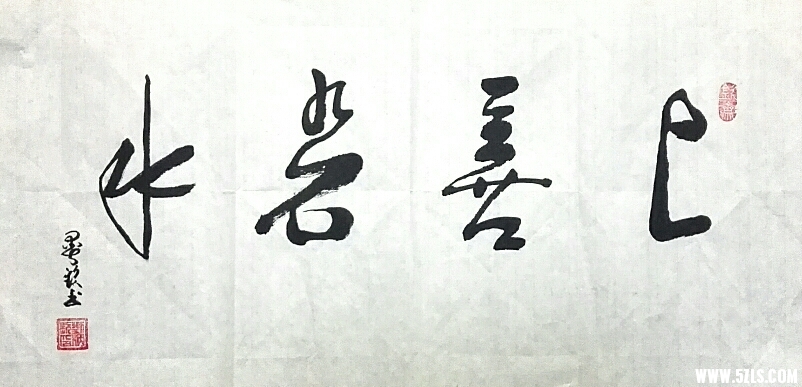 上善若水
書
WWW.5ZLS.COM